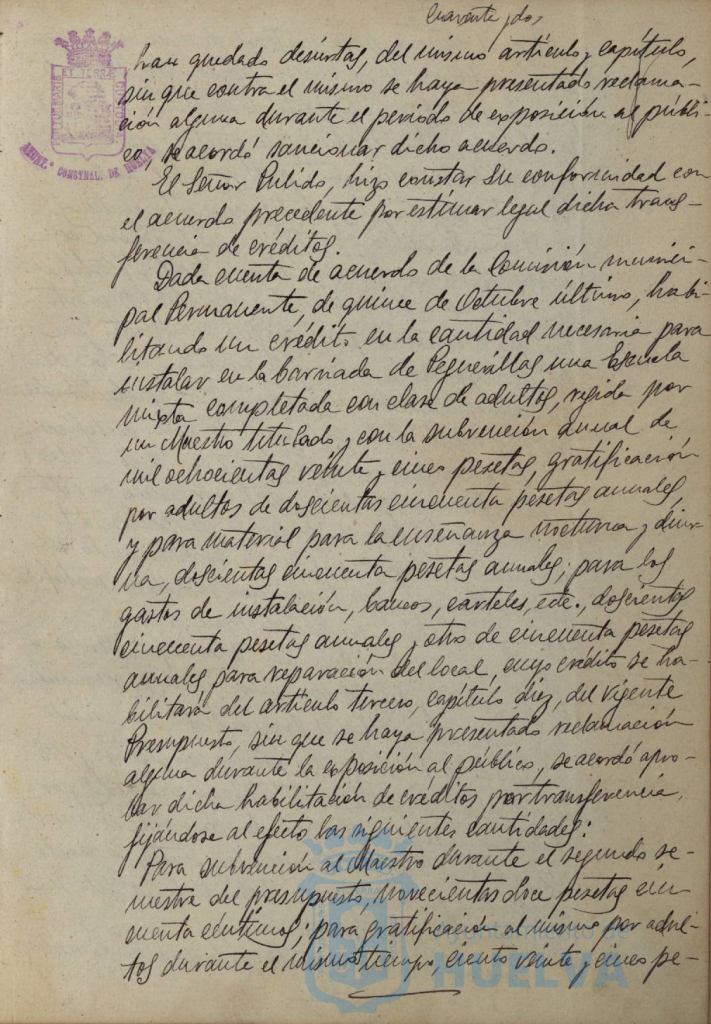 Cuarenta y dos
han quedado desiertas, del mismo artículo y capítulo,
sin que contra el mismo se haya presentado reclama-
ción alguna durante el período de exposición al públi-
co, se acordó sancionar dicho acuerdo.
El Señor Pulido, hizo constar su conformidad con
el acuerdo precedente por estimar legal dicha trans-
ferencia de créditos.
Dada cuenta de acuerdo de la Comisión munici-
pal Permanente, de quince de Octubre último, habi-
litando un crédito en la cantidad necesaria para
instalar en la barriada de Peguerillas una Escuela
mixta completada con clase de adultos, regida por
un Maestro titulado y con la subvención anual de
mil ochocientas veinte y cinco pesetas, gratificación
por adultos de doscientas cincuenta pesetas anuales,
y para material para la enseñanza nocturna y diur-
na, doscientas cincuenta pesetas anuales; para los
gastos de instalación, bancos, carteles, etc., doscientas
cincuenta pesetas anuales y otro de cincuenta pesetas
anuales para reparación del local, cuyo crédito se ha-
bilitará del artículo tercero, capítulo diez, del vigente
Presupuesto, sin que se haya presentado reclamación
alguna durante la exposición al público, se acordó apro-
bar dicha habilitación de créditos por transferencia,
fijándose al efecto las siguientes cantidades:
Para subvención al Maestro durante el segundo se-
mestre del presupuesto, novecientas doce pesetas cin-
cuenta céntimos; para gratificación al mismo por adul-
tos durante el mismo tiempo, ciento veinte y cinco pe-
HUELVA